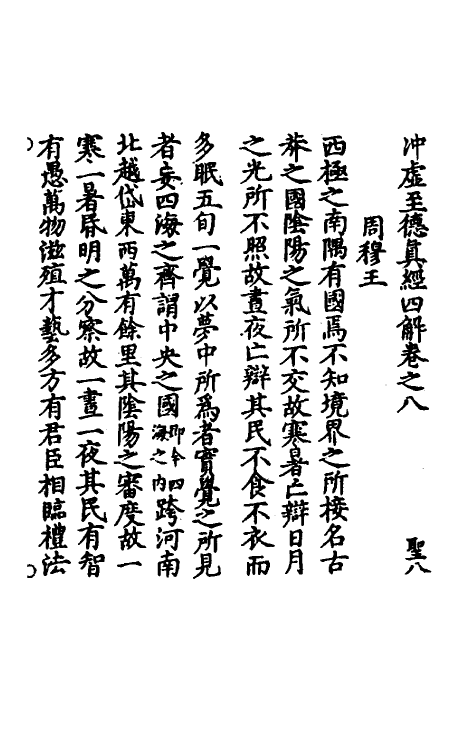 冲虛至德真經四解卷之八　聖八
周穆王
西極之南隅有國焉不知境界之所接名古
莽之國陰陽之氣所不交故寒暑亡辯日月
之光所不照故晝夜亡辯其民不食不衣而
多眠五旬一覺以夢中所為者實覺之所見
者妄四海之齊謂中央之國即今四海之內跨河南
北越岱東西萬有餘里其陰陽之審度故一
寒一暑昏明之分察故一晝一夜其民有智
有愚萬物滋殖才藝多方有君臣相臨禮法